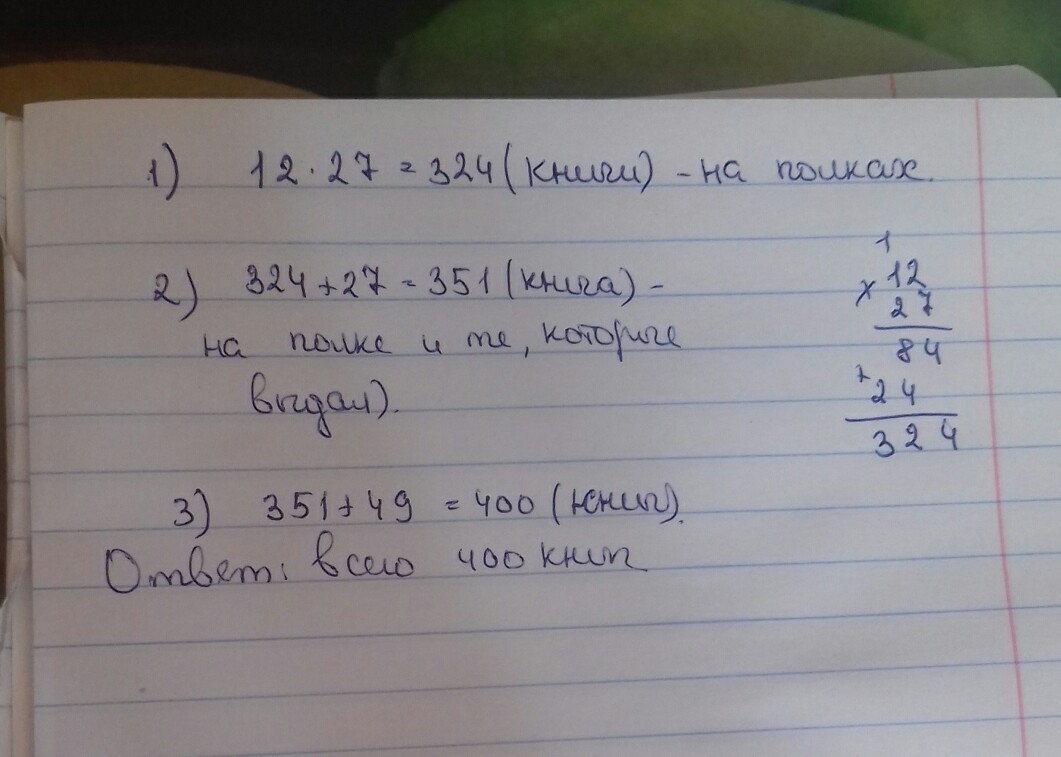 1) 12 · 27 = 324 (книги) - на полках.
2) 324 + 27 = 351 (книга) -
на полке и те, которые
выдал).
1
× 12
27
84
+ 24
324
3) 351 + 49 = 400 (книг).
Ответ: всего 400 книг